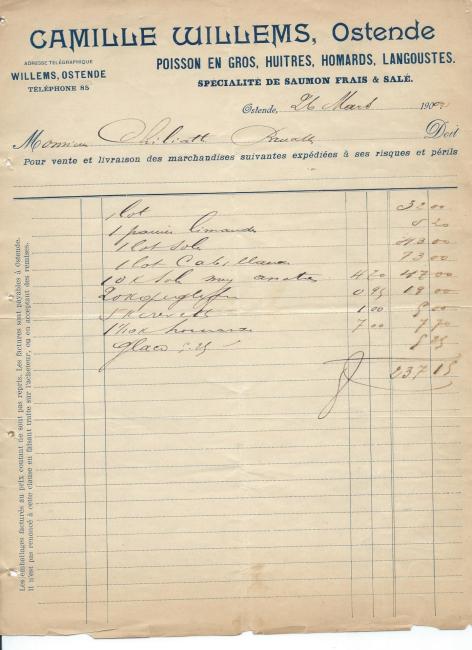 CAMILLE WILLEMS, Ostende
ADRESSE TÉLÉGRAPHIQUE
WILLEMS, OSTENDE
TÉLÉPHONE 85
POISSON EN GROS, HUITRES, HOMARDS, LANGOUSTES.
SPÉCIALITÉ DE SAUMON FRAIS & SALÉ.
Ostende, 26 Mart 190
Monsieur Doit
Pour vente et livraison des marchandises suivantes expédiées à ses risques et périls
1 lot 32 00
1 panier limandes 5 20
1 lot sole 00
1 lot Cabillaud 73 00
10 K sole 4 20 00
20 K 0 95 19 00
5 K 1.00 5 00
K homard 7 00 7 70
glace 5.25 5 25
237 15
Les emballages facturés au prix coutant ne sont pas repris. Les factures sont payables à Ostende.
Il n'est pas renoncé à cette clause en faisant traite sur l'acheteur, ou en acceptant des remises.